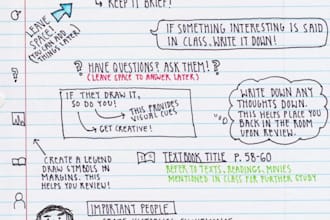 ↳ KEEP IT BRIEF!
LEAVE
SPACE!
(YOU CAN ADD
THINGS LATER)
IF SOMETHING INTERESTING IS SAID
IN CLASS, WRITE IT DOWN!
? HAVE QUESTIONS? ASK THEM!
(LEAVE SPACE TO ANSWER LATER)
IF THEY DRAW IT,
SO DO YOU!
THIS PROVIDES
VISUAL CUES
GET CREATIVE!
WRITE DOWN ANY
THOUGHTS DOWN.
THIS HELPS PLACE YOU
BACK IN THE ROOM
UPON REVIEW.
CREATE A LEGEND
DRAW SYMBOLS IN
MARGINS. THIS
HELPS YOU REVIEW!
TEXTBOOK TITLE P. 58-60
REFER TO TEXTS, READINGS, MOVIES
MENTIONED IN CLASS FOR FURTHER STUDY
IMPORTANT PEOPLE